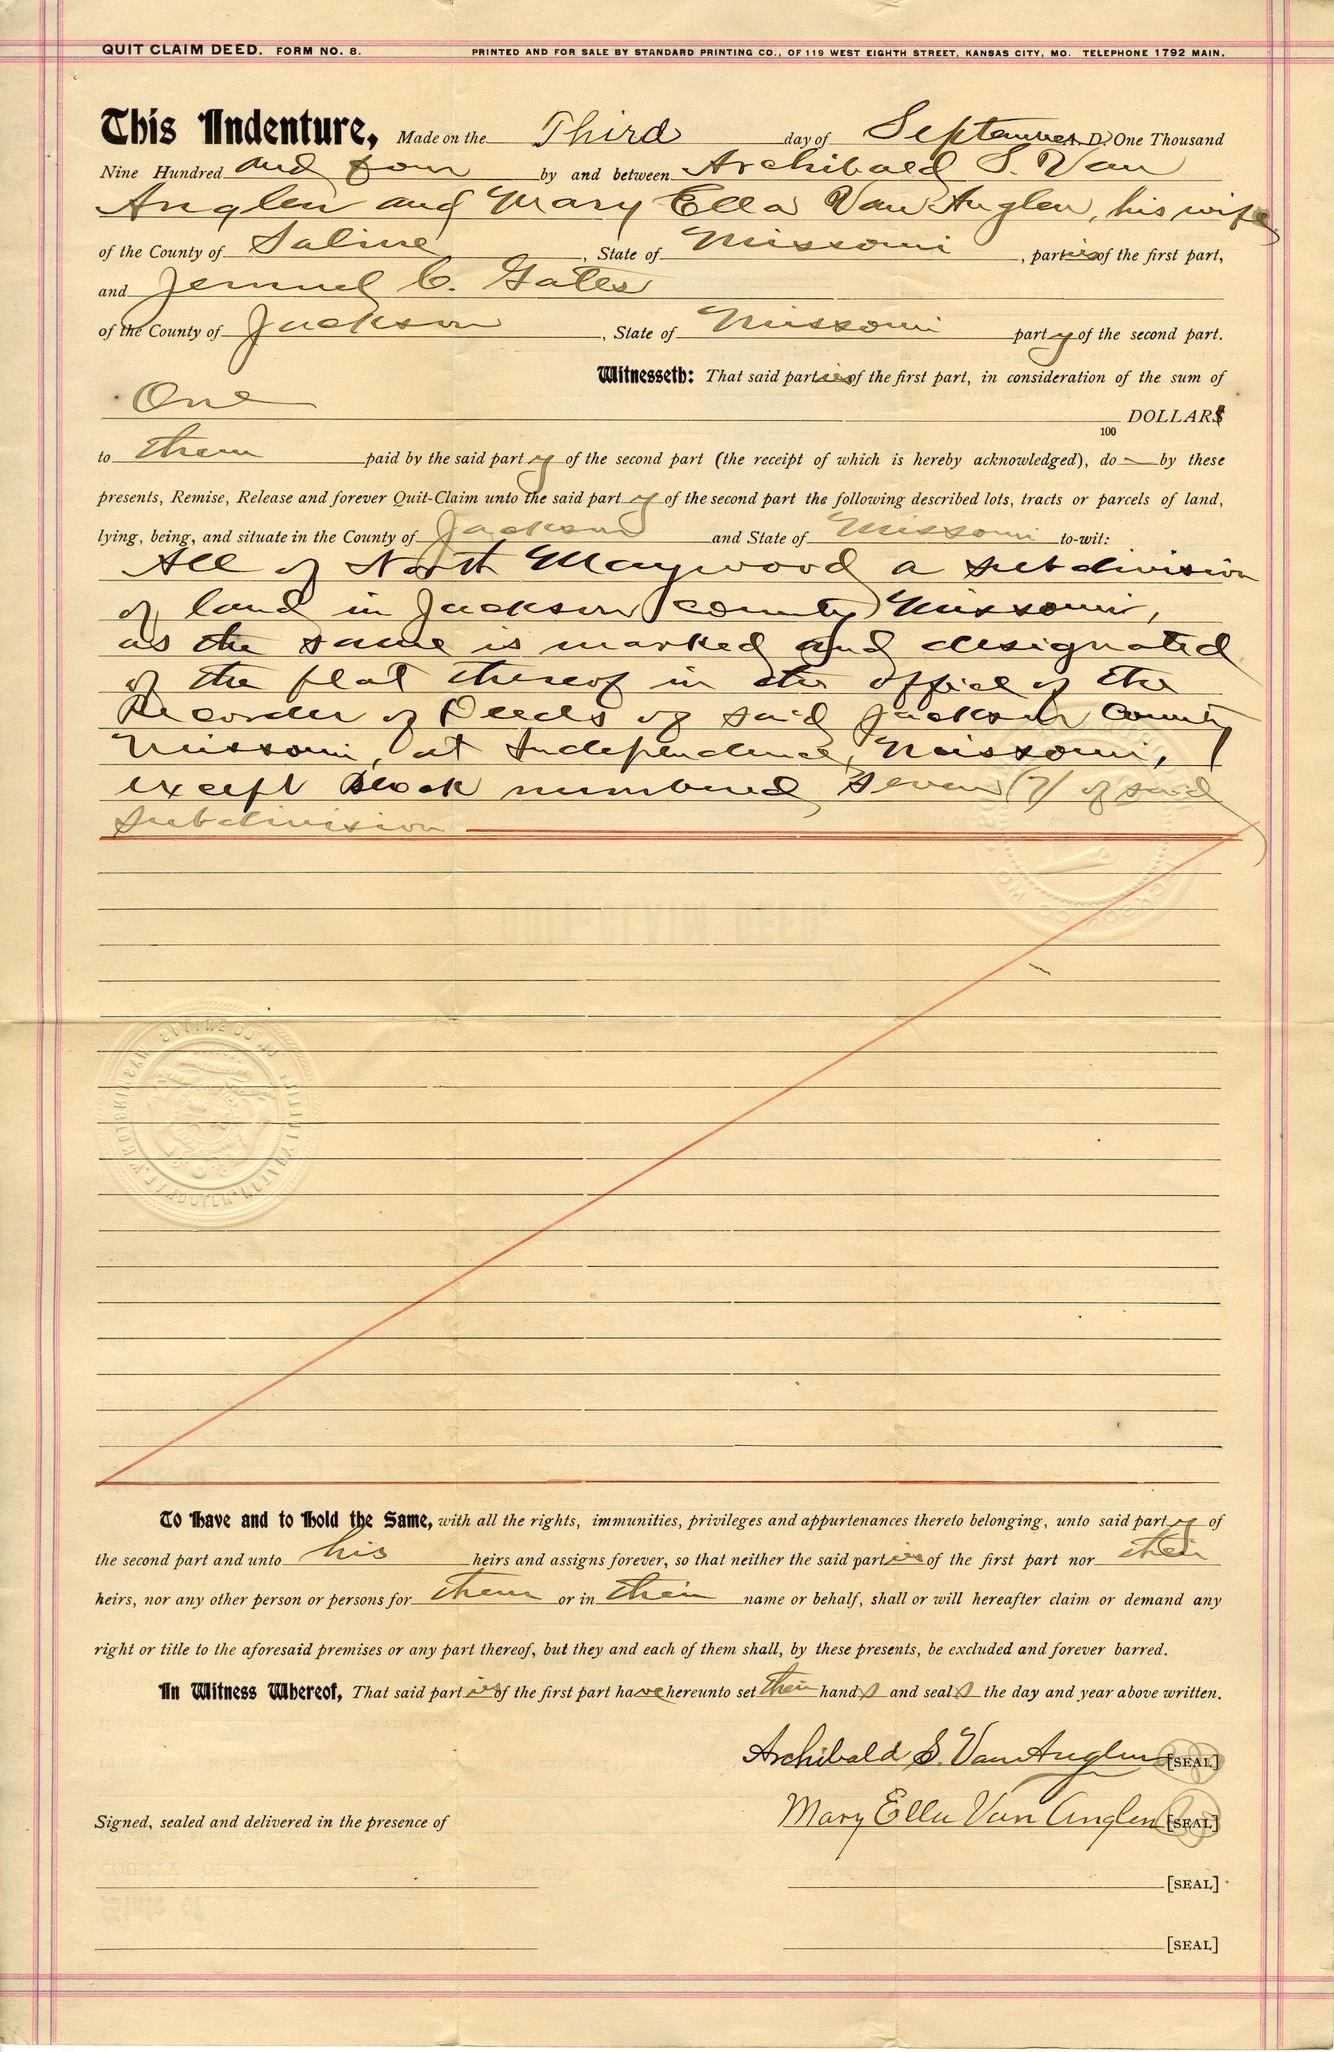 QUIT CLAIM DEED. FORM NO. 8. PRINTED AND FOR SALE BY STANDARD PRINTING CO., OF 119 WEST EIGHTH STREET, KANSAS CITY, MO. TELEPHONE 1792 MAIN.
This Indenture, Made on the Third day of September A. D. One Thousand
Nine Hundred and four by and between Archibald S. Van
Anglen and Mary Ella Van Anglen, his wife
of the County of Saline, State of Missouri, parties of the first part,
and Jemuel C. Gates
of the County of Jackson, State of Missouri party of the second part.
Witnesseth: That said parties of the first part, in consideration of the sum of
One 100 DOLLAR$
to them paid by the said party of the second part (the receipt of which is hereby acknowledged), do by these
presents, Remise, Release and forever Quit-Claim unto the said party of the second part the following described lots, tracts or parcels of land,
lying, being, and situate in the County of Jackson and State of Missouri to-wit:
All of North Maywood a subdivision
of land in Jackson County Missouri,
as the same is marked and designated
of the plat thereof in the office of the
Recorder of Deeds of said Jackson County
Missouri, at Independence, Missouri,
except Block numbered Seven (7) of said
subdivision
To Have and to Hold the Same, with all the rights, immunities, privileges and appurtenances thereto belonging, unto said party of
the second part and unto his heirs and assigns forever, so that neither the said parties of the first part nor their
heirs, nor any other person or persons for them or in their name or behalf, shall or will hereafter claim or demand any
right or title to the aforesaid premises or any part thereof, but they and each of them shall, by these presents, be excluded and forever barred.
In Witness Whereof, That said parties of the first part have hereunto set their hands and seals the day and year above written.
Archibald S. Van Anglen [SEAL]
Mary Ella Van Anglen [SEAL]
Signed, sealed and delivered in the presence of
[SEAL]
[SEAL]